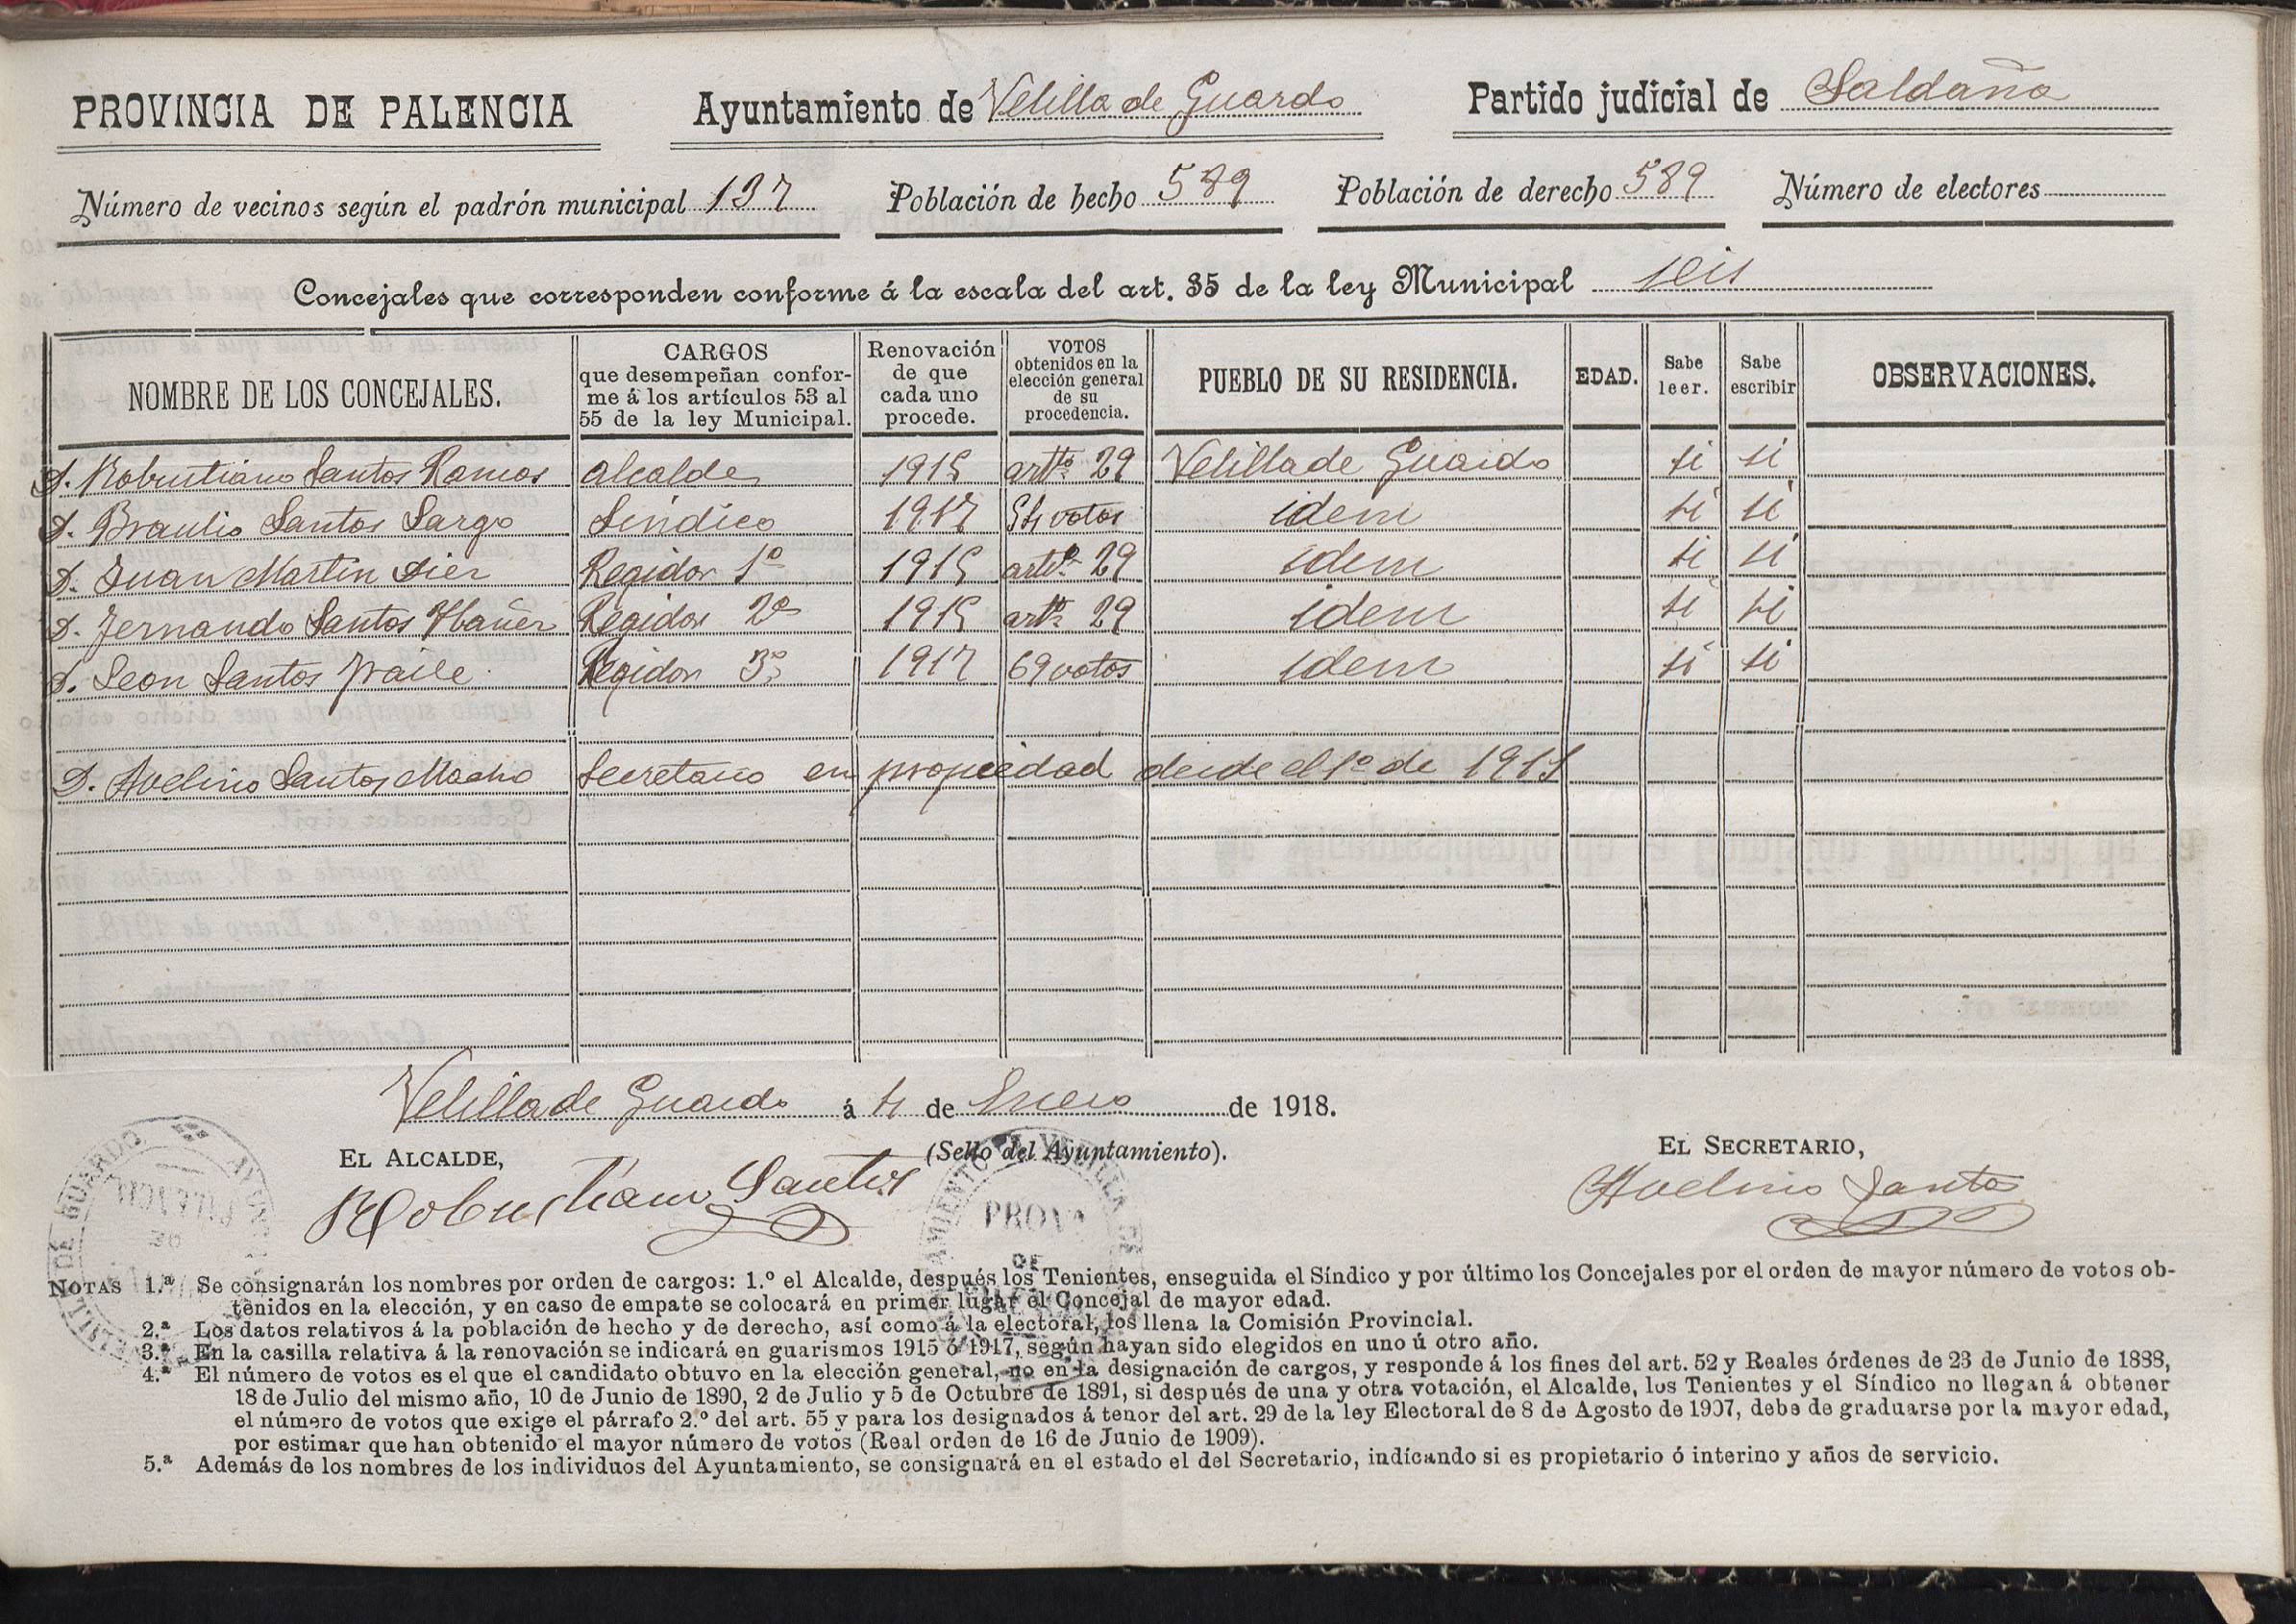 PROVINCIA DE PALENCIA Ayuntamiento de Velilla de Guardo Partido judicial de Saldaña
Número de vecinos según el padrón municipal 137 Población de hecho 589 Población de derecho 589 Número de electores
Concejales que corresponden conforme á la escala del art. 35 de la ley Municipal seis
NOMBRE DE LOS CONCEJALES.
CARGOS
que desempeñan confor-
me á los artículos 53 al
55 de la ley Municipal.
Renovación
de que
cada uno
procede.
VOTOS
obtenidos en la
elección general
de su
procedencia.
PUEBLO DE SU RESIDENCIA.
EDAD.
Sabe
leer.
Sabe
escribir
OBSERVACIONES.
D. Robustiano Santos Ramos alcalde 1915 artº 29 Velilla de Guardo si si
D. Braulio Santos Largo Sindico 1917 votos idem si si
D. Juan Martin Dier Regidor 1º 1915 artº 29 idem si si
D. Fernando Santos Ybañer Regidor 2º 1915 artº 29 idem si si
D. Leon Santos Fraile Regidor 3º 1917 69 votos idem si si
D. Avelino Santos Macho Secretario en propiedad desde el 1º de 1911
Velilla de Guardo á 4 de Enero de 1918.
EL ALCALDE, (Sello del Ayuntamiento). EL SECRETARIO,
Robustiano Santos Avelino Santos
AYUNTAMIENTO DE VELILLA DE GUARDO
PROVA
DE
NOTAS 1.ª Se consignarán los nombres por orden de cargos: 1.º el Alcalde, después los Tenientes, enseguida el Síndico y por último los Concejales por el orden de mayor número de votos ob-
tenidos en la elección, y en caso de empate se colocará en primer lugar el Concejal de mayor edad.
2.ª Los datos relativos á la población de hecho y de derecho, así como á la electoral, los llena la Comisión Provincial.
3.ª En la casilla relativa á la renovación se indicará en guarismos 1915 ó 1917, según hayan sido elegidos en uno ú otro año.
4.ª El número de votos es el que el candidato obtuvo en la elección general, no en la designación de cargos, y responde á los fines del art. 52 y Reales órdenes de 23 de Junio de 1888,
18 de Julio del mismo año, 10 de Junio de 1890, 2 de Julio y 5 de Octubre de 1891, si después de una y otra votación, el Alcalde, los Tenientes y el Síndico no llegan á obtener
el número de votos que exige el párrafo 2.º del art. 55 y para los designados á tenor del art. 29 de la ley Electoral de 8 de Agosto de 1907, debe de graduarse por la mayor edad,
por estimar que han obtenido el mayor número de votos (Real orden de 16 de Junio de 1909).
5.ª Además de los nombres de los individuos del Ayuntamiento, se consignará en el estado el del Secretario, indicando si es propietario ó interino y años de servicio.